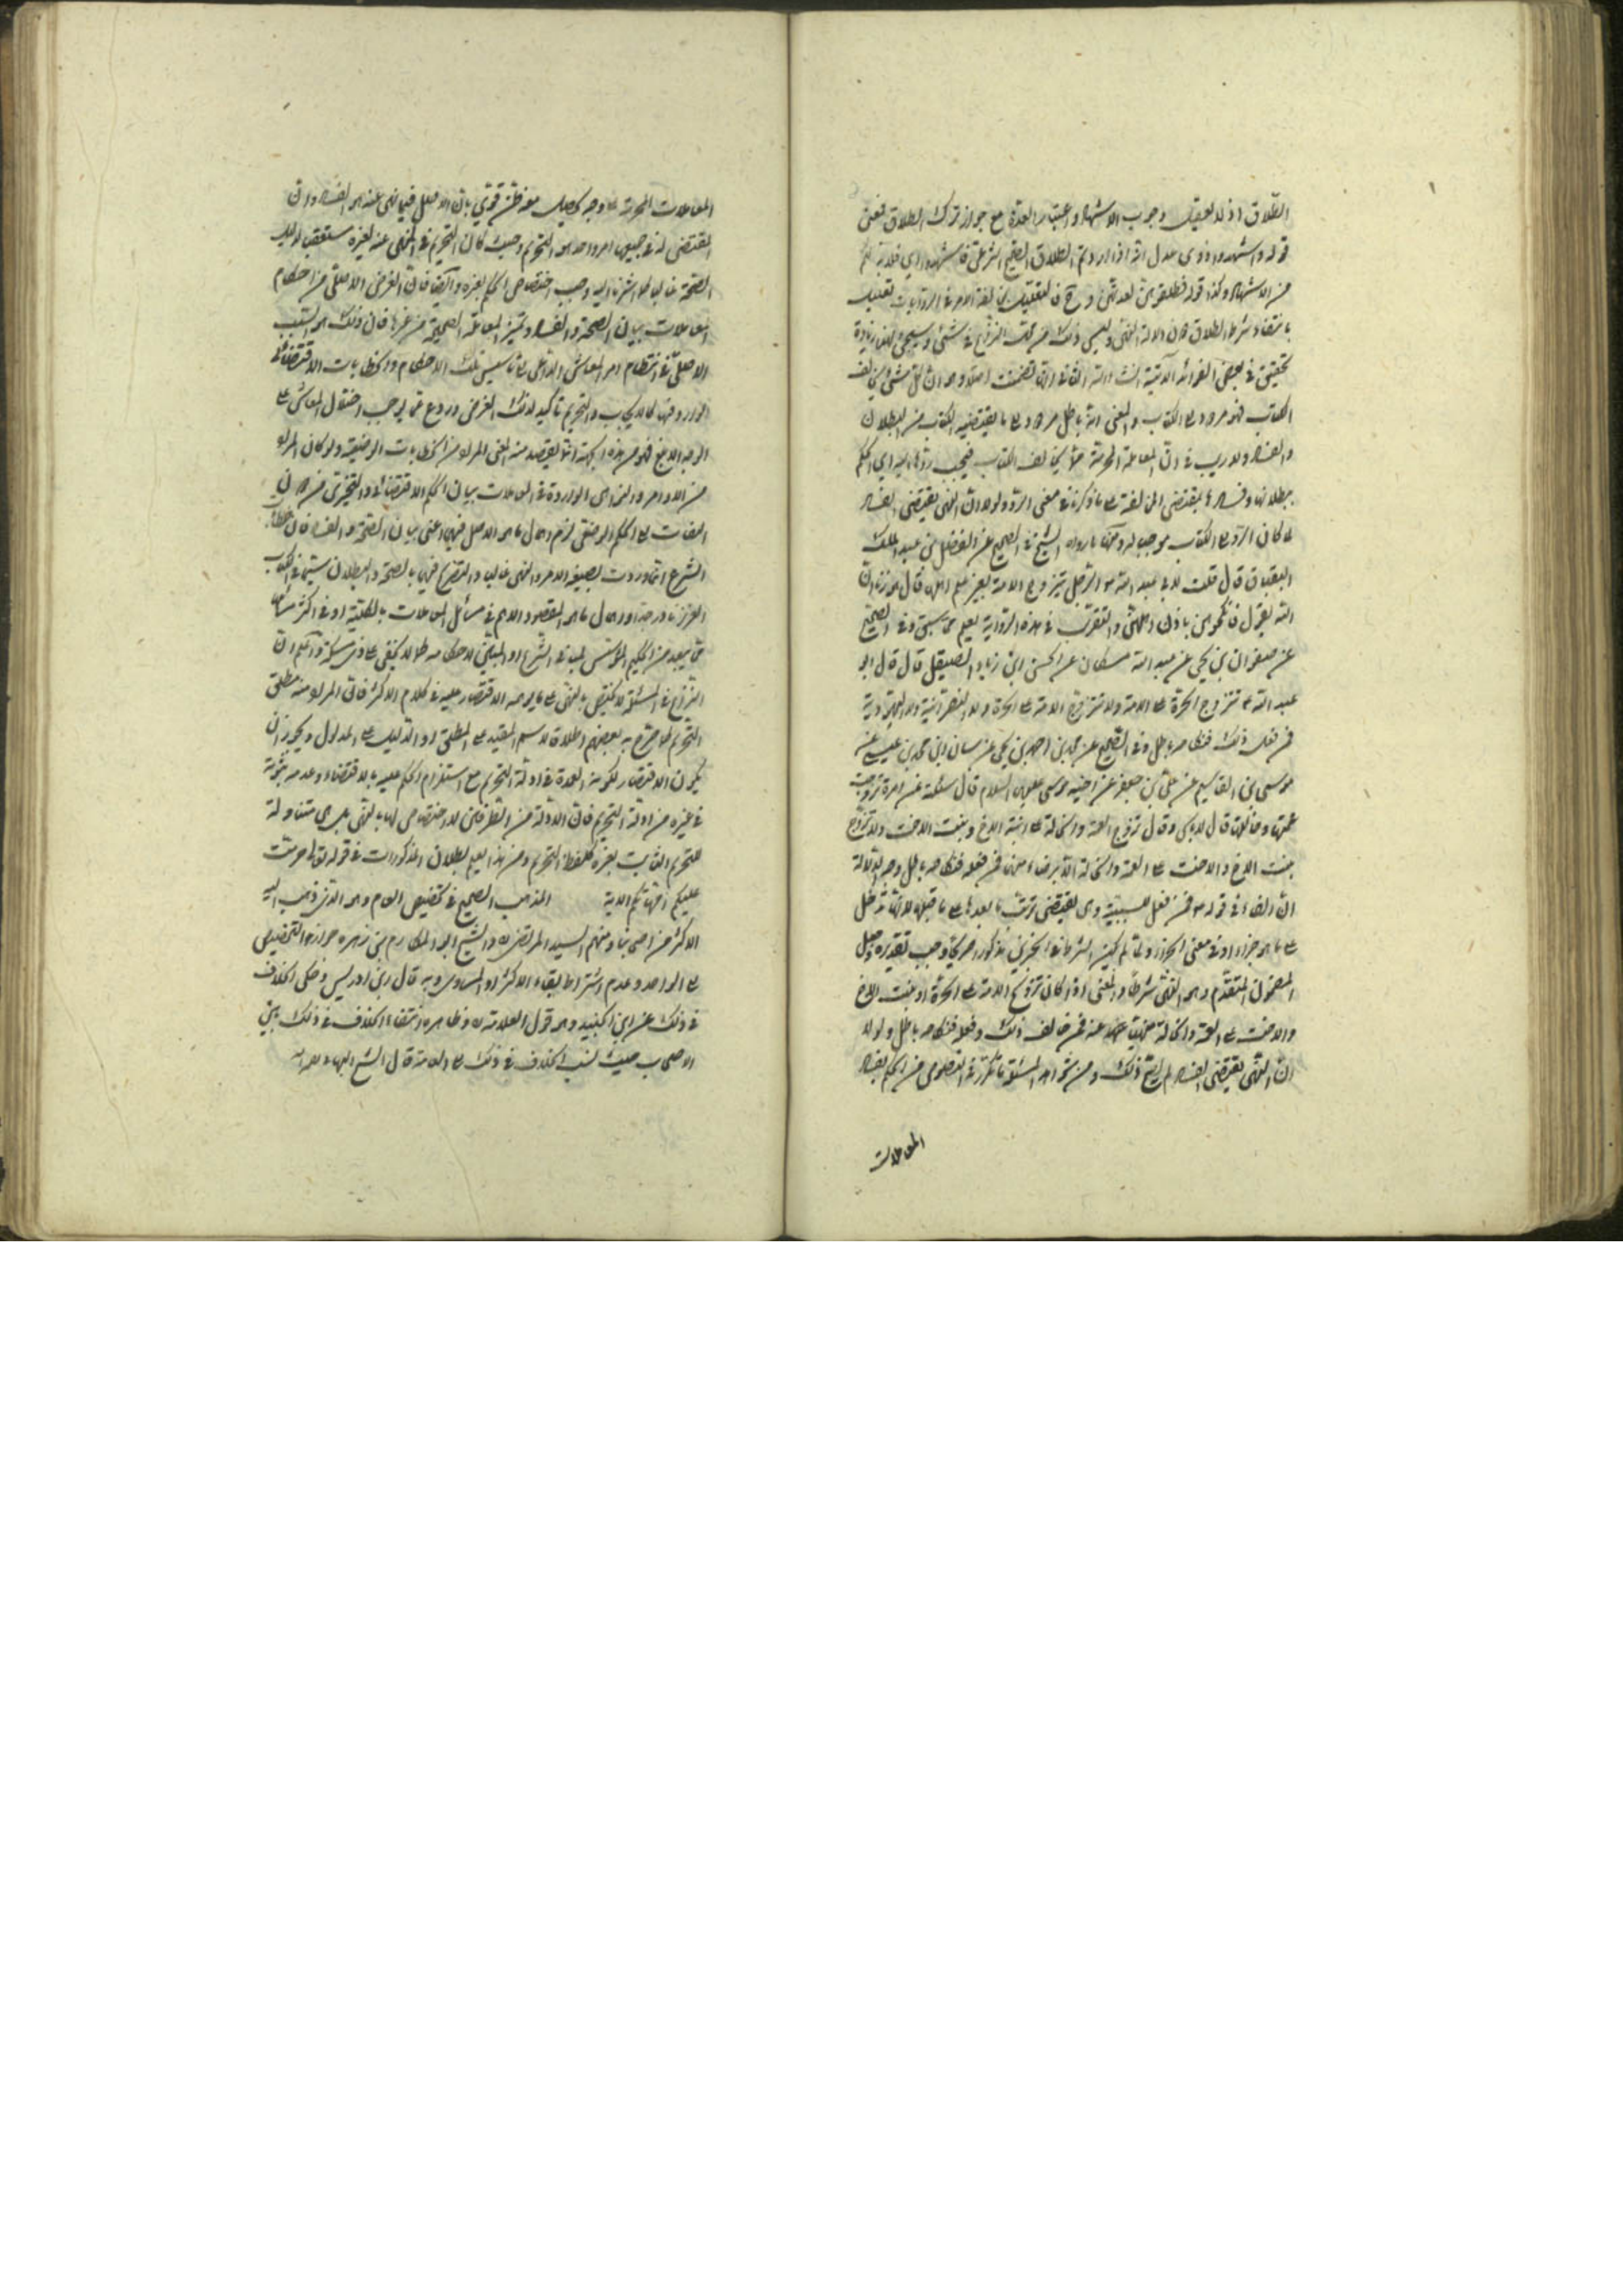 الطلاق اذ لا يعقل وجوب الاشهاد و اعتبار العدة مع جواز ترك الطلاق فمعنى
قوله و اشهدوا ذوى عدل انه اذا اردتم الطلاق الصحيح الشرعى فاشهدوا اى فلا بد لكم
من الاشهاد وكذا قوله فطلقوهن لعدتهن و ح فالتعليل بمخالفة الامر فى الروايات تعليل
بانتفاء شرط الطلاق لا دلالة النهى وليس ذلك من محل النزاع فى شئ وسيجئ لهذا زيادة
تحقيق فى بعض الفوائد الآتية انشاء الله الثانى انها تضمنت اصلا وهو ان كل شئ يخالف
الكتاب فهو مردود الى الكتاب والمعنى انه باطل مردود الى ما يقتضيه الكتاب من البطلان
والفساد ولا ريب فى ان المعاملة المحرمة مما يخالف الكتاب فيجب ردها اليه اى الحكم
ببطلانها وفسادها بمقتضى المخالفة على ما ذكرنا فى معنى الرد ولولا ان النهى يقتضى الفساد
لما كان الرد الى الكتاب موجبا له ومنها ما رواه الشيخ فى الصحيح عن الفضل بن عبد الملك
البقباق قال قلت لابى عبد الله ع الرجل يتزوج الامة بغير علم اهلها قال هو زنا ان
الله يقول فانكحوهن باذن اهلهن والتقريب فى هذه الرواية يعلم مما سبق وفى الصحيح
عن صفوان بن يحيى عن عبد الله مسكان عن الحسن ابن زياد الصيقل قال قال ابو
عبد الله ع تتزوج الحرة على الامة ولا تتزوج الامة على الحرة ولا النصرانية ولا اليهودية
فمن فعل ذلك فنكاحه باطل وفى الصحيح عن محمد بن احمد بن يحيى عن بنان ابن محمد بن عيسى عن
موسى بن القاسم عن على بن جعفر عن اخيه موسى عليه السلام قال سئلته عن امرة تزوجت
عمتها وخالتها قال لا باس وقال تزوج العمة والخالة على ابنة الاخ وبنت الاخت ولا تزوج
بنت الاخ والاخت على العمة والخالة الا برضاء منهما فمن فعله فنكاحه باطل وجه الدلالة
ان الفاء فى قوله ع فمن فعل للسببية وهى تقتضى ترتب ما بعدها على ما قبلها لانها تدخل
على ما هو جزاء او فى معنى الجزاء ولما لم يكن الشرط فى الخبرين مذكورا صريحا وجب تقديره وجعل
المضمون المتقدم وهو النهى شرطا والمعنى اذا كان تزويج الامة على الحرة او بنت الاخ
والاخت على العمة والخالة منهيا عنه فمن خالف ذلك وفعله فنكاحه باطل ولولا
ان النهى يقتضى الفساد لم يصح ذلك ومن شواهد المسئلة ما تكرر فى النصوص من الحكم بفساد
المعاملات
المعاملات المحرمة على وجه يحصل معه ظن قوى بان الاصل فيما نهى عنه هو الفساد وان
المقتضى له فى جميعها امر واحد هو التحريم وحيث كان التحريم فى المنهى عنه لغيره
الصحة غالبا كما اشرنا اليه وجب اختصاص الحكم بغيره وايضا فان الغرض الاصلى من احكام
المعاملات بيان الصحة والفساد وتميز المعاملة الصحيحة من غيرها فان ذلك هو السبب
الاصلى فى انتظام امر المعاش الداعى الى تاسيس تلك الاحكام والخطابات الاقتضائية
الواردة فيها كالايجاب والتحريم تاكيد لذلك الغرض وردع عما يوجب اختلال المعاش على
الوجه الابلغ فهو من هذه الجهة انما يقصد منه المعنى المراد من الخطابات الوضعية ولو كان المراد
من الاوامر والنواهى الواردة فى المعاملات بيان الحكم الاقتضائى والتخيرى من دون
التفات الى الحكم الوضعى لزم اهمال ما هو الاصل فيها اعنى بيان الصحة والفساد فان
الشرع انما وردت بصيغة الامر والنهى غالبا والتصريح فيها بالصحة والبطلان سيما فى الكتاب
العزيز نادر جدا واهمال ما هو المقصود الاهم فى مسائل المعاملات بالكلية او فى اكثر مسائلها
مما يبعد من الحكيم المؤسس لمبانى الشرع او المبين لاحكامه كما لا يخفى على ذى مسكة واعلم ان
النزاع فى المسئلة لا يختص بالنهى على ما يوهمه الاقتصار عليه فى كلام الاكثر فان المراد منه مطلق
التحريم كما صرح به بعضهم اطلاقا لاسم المقيد على المطلق او الدليل على المدلول ويجوز ان
يكون الاقتصار لكونه العمدة فى ادلة التحريم مع استلزام الحكم عليه بالاقتضاء وعدمه ثبوته
فى غيره من ادلة التحريم فان الادلة من الطرفين لا اختصاص لها بالنهى بل هى متناولة
للتحريم الثابت بغيره كلفظ التحريم ومن هذا يعلم بطلان المذكورات فى قوله تعالى حرمت
عليكم امهاتكم الاية المذهب الصحيح فى تخصيص العام وهو الذى ذهب اليه
الاكثر من اصحابنا ومنهم السيد المرتضى ره والشيخ ابو المكارم بن زهره جوازه التخصيص
الى الواحد وعدم اشتراط بقاء الاكثر او المساوى وبه قال ابن ادريس وحكى الخلاف
فى ذلك عن ابن الجنيد وهو قول العلامة ره وظاهره انتفاء الخلاف فى ذلك بين
الاصحاب حيث نسب الخلاف فى ذلك الى العامة قال الشيخ البهاء ره